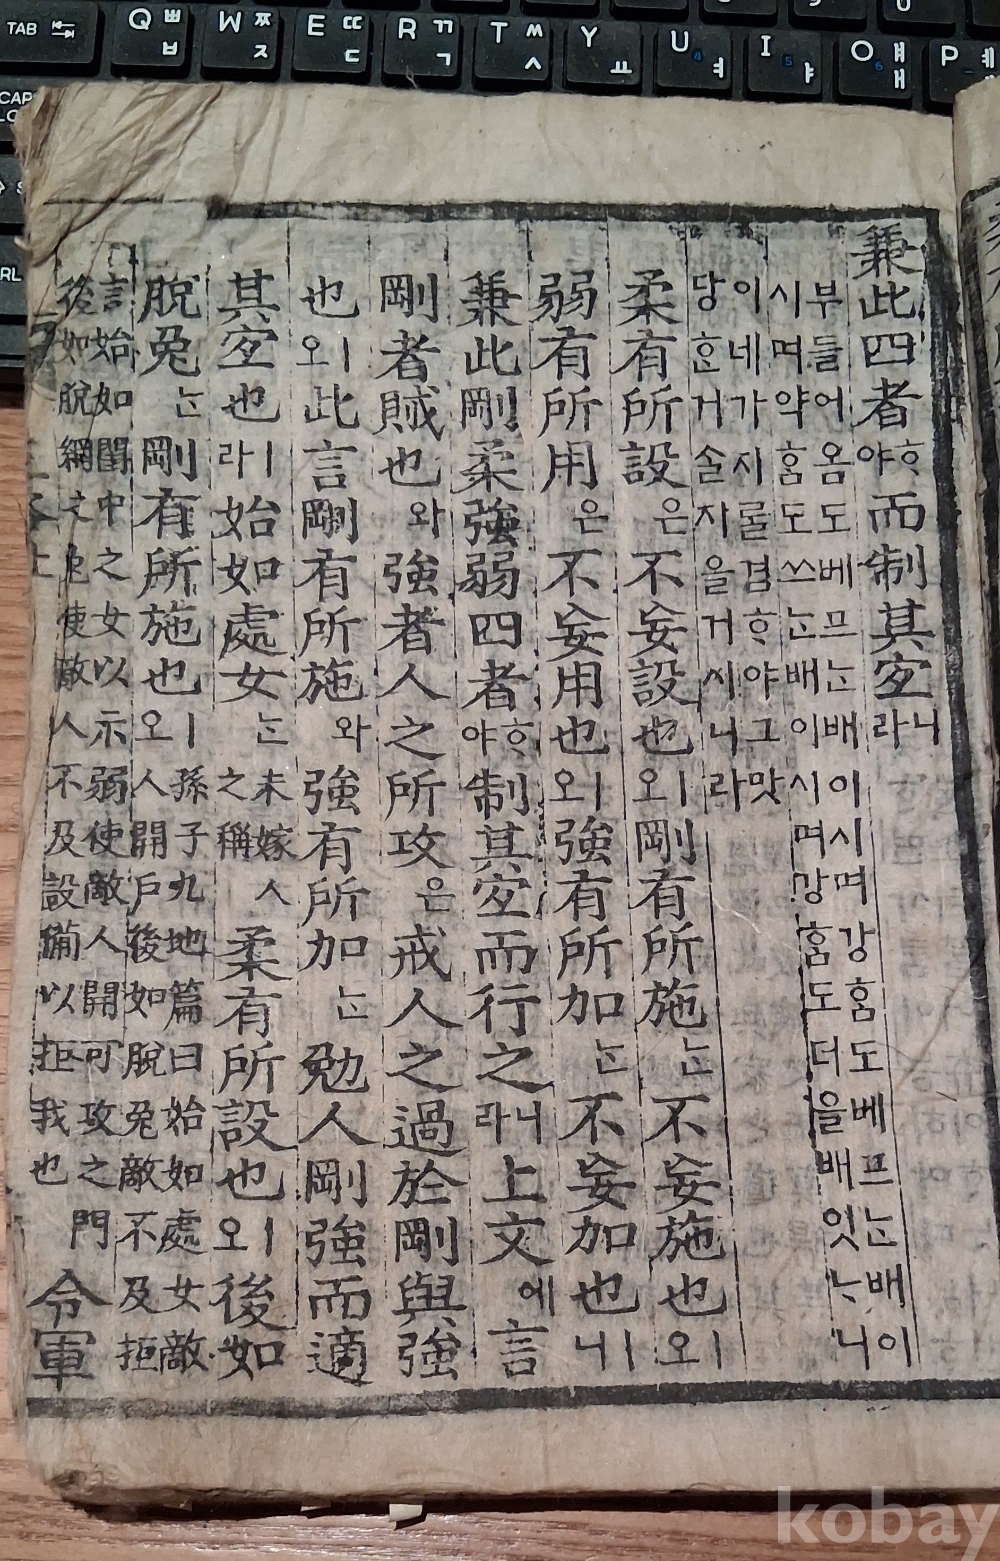 TAB Q ㅃ ㅂ W ㅉ ㅈ E ㄸ ㄷ R ㄲ ㄱ T ㅆ ㅅ Y ㅛ U 4 ㅕ I 5 ㅑ O 6 ㅒ ㅐ P
兼此四者ᄒᆞ야而制其宐니라
부들어옴도베프ᄂᆞᆫ배이시며강홈도베프ᄂᆞᆫ배이
시며약홈도쓰ᄂᆞᆫ배이시며강홈도더을배잇ᄂᆞ니
이네가지롤겸ᄒᆞ야그맛
당ᄒᆞᆫ거솔자을거시니라
柔有所設은不妄設也ㅣ오剛有所施ᄂᆞᆫ不妄施也ㅣ오
弱有所用은不妄用也ㅣ오強有所加ᄂᆞᆫ不妄加也ㅣ니
兼此剛柔強弱四者ᄒᆞ야制其宐而行之니라上文에言
剛者賊也와強者人之所攻은戒人之過於剛與強
也ㅣ오此言剛有所施와強有所加ᄂᆞᆫ勉人剛強而適
其宐也ㅣ라始如處女ᄂᆞᆫ未嫁人之稱柔有所設也ㅣ오後如
脫兔ᄂᆞᆫ剛有所施也ㅣ오孫子九地篇曰始如處女敵
人開戶後如脫兔敵不及拒
言始如閨中之女以示弱使敵人開可攻之門
後如脫網之兔使敵人不及設備以拒我也
令軍
kobay